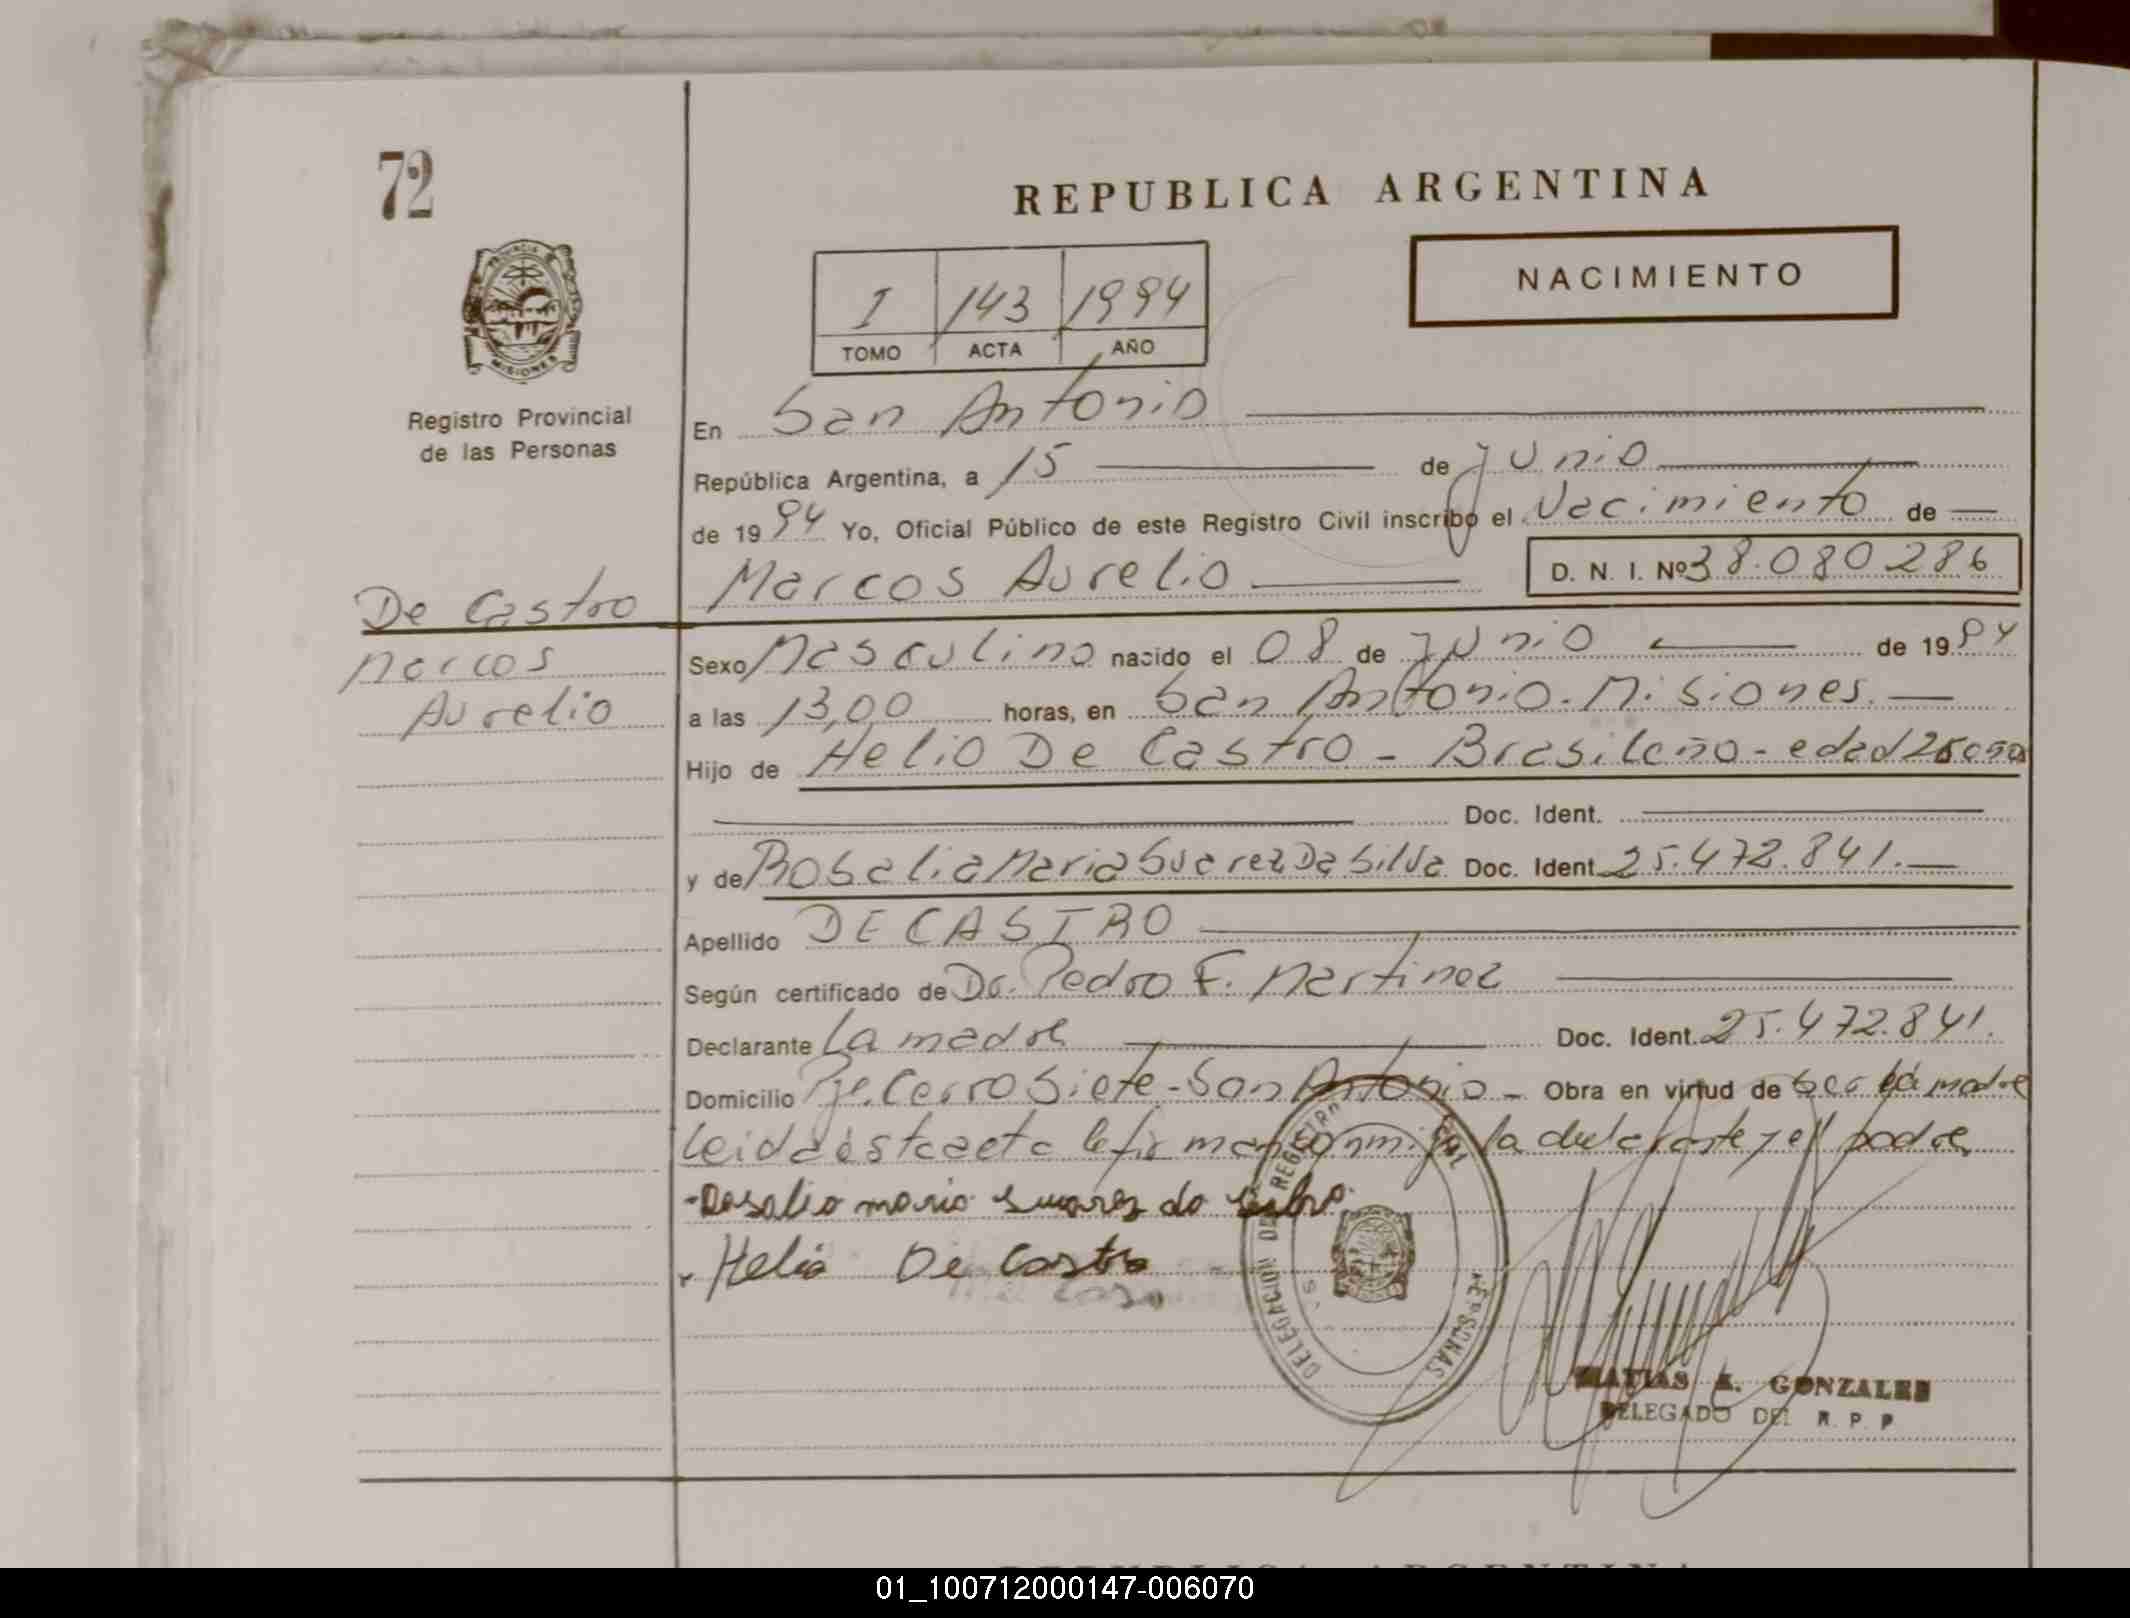 72
REPUBLICA ARGENTINA
NACIMIENTO
I 143 1994
TOMO ACTA AÑO
PROVINCIA DE MISIONES
Registro Provincial
de las Personas
En San Antonio
República Argentina, a 15 de Junio
de 1994 Yo, Oficial Público de este Registro Civil inscribo el Nacimiento de
Marcos Aurelio D. N. I. Nº 38.080286
De Castro
Marcos
Aurelio
Sexo Masculino nacido el 08 de Junio de 1994
a las 13,00 horas, en San Antonio. Misiones.
Hijo de Helio De Castro - Brasileño - edad años
Doc. Ident.
y de Rosalia Maria Suarez Da Silva Doc. Ident. 25.472.841.
Apellido DE CASTRO
Según certificado de Dr. Pedro F. Martinez
Declarante La madre Doc. Ident. 25.472.841.
Domicilio Pje. Cerro Siete - San Antonio - Obra en virtud de ser la madre
Leida esta acta la firman conmigo la declarante y el padre
- Rosalia maria Suarez da Silva
Helio De Castro
DELEGACION DEL REGISTRO PERSONAS
MATIAS A. GONZALEZ
DELEGADO DEL R. P. P
REPUBLICA ARGENTINA
01_100712000147-006070